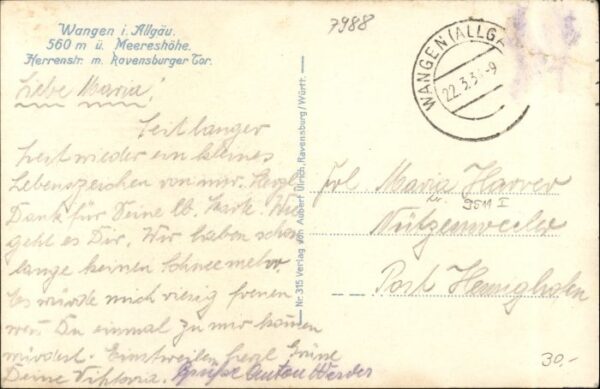 Wangen i. Allgäu.
560 m ü. Meereshöhe.
Herrenstr. m. Ravensburger Tor.
7988
WANGEN (ALLGÄ
22.3.3 -9
Liebe Maria!
Seit langer
Zeit wieder ein kleines
Lebenszeichen von mir. Herzl.
Dank für Deine lb. Karte. Wie
geht es Dir. Wir haben schon
lange keinen Schnee mehr.
Es würde mich riesig freuen
wen Du einmal zu mir kämen
würdest. Einstweilen herzl. Grüße
Deine Viktoria. Grüße Anton Werder
Nr. 315 Verlag von Aubert Ulrich, Ravensburg/Württ.
Frl Maria Harrer
9511 I
Nützenweiler
Post
30.-